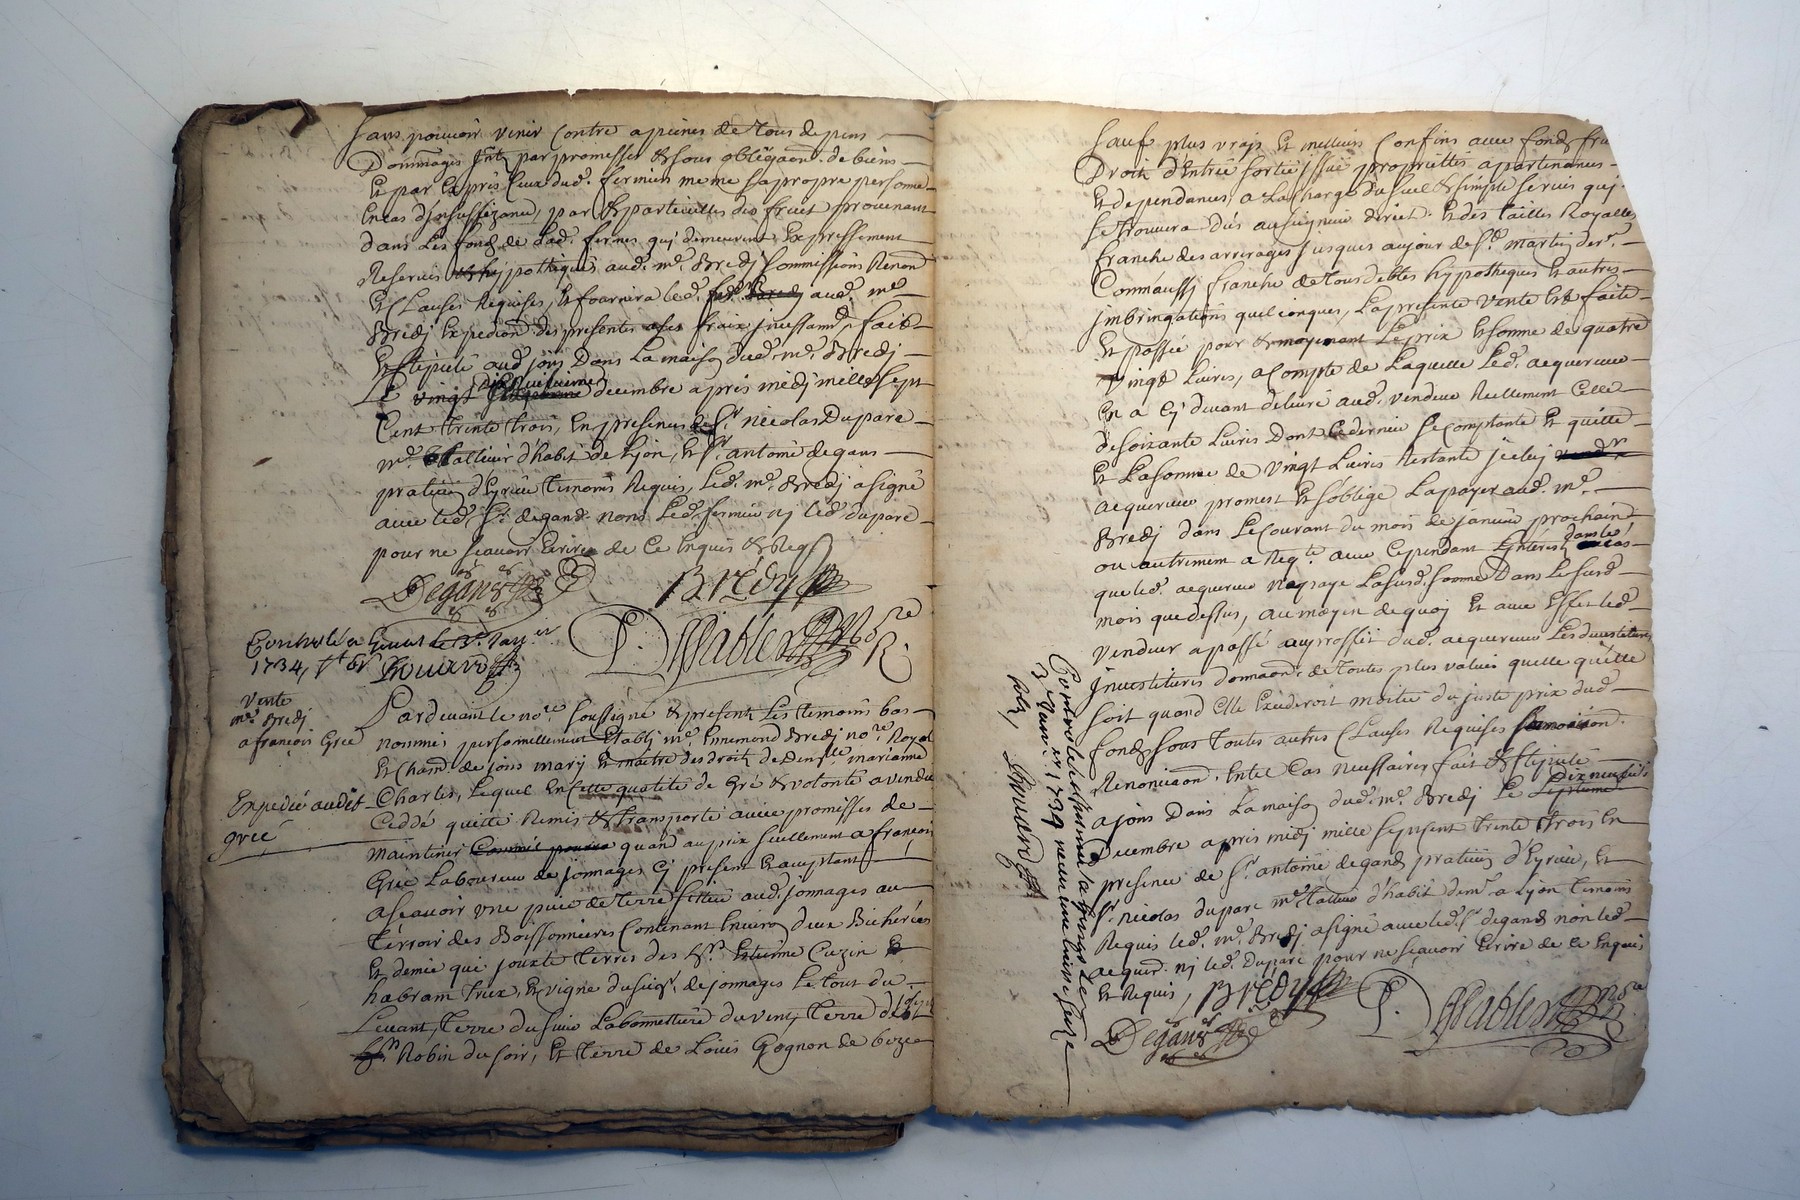 sans pouvoir venir contre a peines de tous depens
Dommages Intts par promesses & sous obligaōn. de biens
Et par Exprés ceux dud. fermier meme sa propre personne
En cas d'Insuffizance, par & parteiulles des fruit provenant
dans Les fondz de lad. ferme qui demeurent Expressement
Reservés hypothequés aud. me. Bredj sommissions Renon
Et Clauses Requises, Et fournira led. aud. me
Bredj Expedion. des presentes a ses fraix incessamt. fait
Et stipulé aud. jons Dans La maison dud. me. Bredj
Le vingt decembre apres midj mille sept
Cent trente trois, En presences de Sr. nicolas Duparc
me. tallieur d'habit de Lyon, Et Sr. antoine degans
praticien d'Eyrieu temoins Requis, Led. me. Bredj a signé
avec led. Sr. degand. non Led. fermier nj led. duparc
pour ne sçavoir Ecrire de ce Enquis & Req
Degans Brédy
Controlé a le 3e. Janer
1734,
Vente
me. Bredj
a françois Gree
Pardevant le nore. soussigné & presents Les temoins bas
nommés personnellement Etablj me. Ennemond Bredj nore. Royal
Et Chand. de jons mary Et maitre des droits de Demlle. marianne
Charles, Lequel En Cette qualité de Gré & volonté a vendu
Expedié audit
gree
Ceddé quitté Remis & transporté avec promesses de
maintenir quand au prix seullement a françois
Gree Laboureur de jonnages Cj present Et acceptant
a sçavoir une piece de terre scituée aud. jonnages au
terroir des Boissonnieres Contenant Environ deux Bicherées
Et demie qui jouxte terres des hrs. Estienne Cuzin
habram Et vigne du seigr. de jonnages Le tout du
Levant, terre du du vent, terre
Robin du soir, Et terre de Louis Gognon de bize
sauf plus vrays Et meilleurs Confins avec fonds
Droits d'Entrée sortie issue proprietés apartenances
Et dependances, a La charge du seul & simple servis qui
se trouvera dus au seigneur direct. Et des tailles Royalles
franche des arrerages jusques au jour de St. martin derr.
Comm'aussj franche de tous debtes hypotheques Et autres
jmbringations quelconques, La presente vente Est faite
Et passée pour & moyenant Le prix Et somme de quatre
vingt Livres, a compte de Laquelle Led. acquereur
En a Cj devant delivré aud. vendeur Reellement Celle
de soixante Livres Dont Ce dernier se Contente Et quitte
Et La somme de vingt Livres Restante jceluj
acquereur promest Et s'oblige La payer aud. me.
Bredj dans Le Courant du mois de janvier prochain
ou autrement a Reqte. avec Cependant Interest dans le cas
que led. acquereur ne paye La susd. somme Dans Le susd.
mois que dessus, au moyen de quoj Et avec Effet led.
vendeur a passé au proffit dud. acquereur Les devestitures
jnvestitures de toutes plus values quelle qu'elle
soit quand Elle Excederoit moitié du juste prix dud.
fonds sous toutes autres Clauses Requises
Renonciaon. En tel Cas necessaires, fait & stipulé
a jons Dans La maison dud. me. Bredj Le
Decembre apres midj mille sept cent trente trois En
presence de Sr. antoine degand praticien d'Eyrieu, Et
Sr. nicolas duparc me. tallieur d'habit demt. a Lyon temoins
Requis led. me. Bredj a signé avec led. Sr. degand non led.
acquer. nj led. duparc pour ne sçavoir Ecrire de ce Enquis
Et Requis, Brédy
Degans
Janer 1734